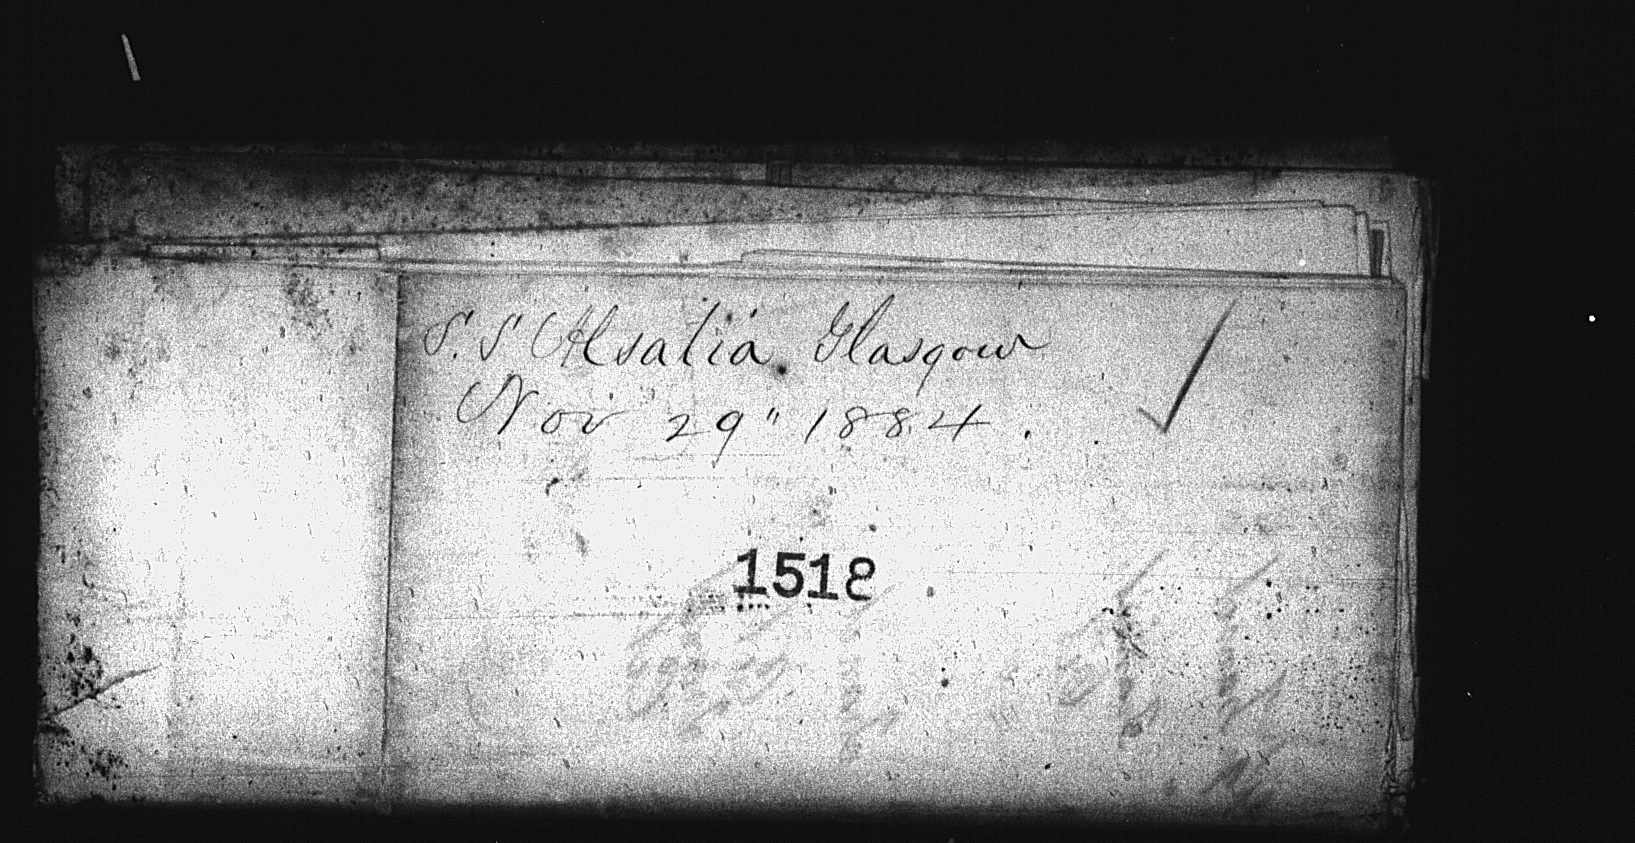 S.S Alsatia Glasgow
Nov 29" 1884.
1518